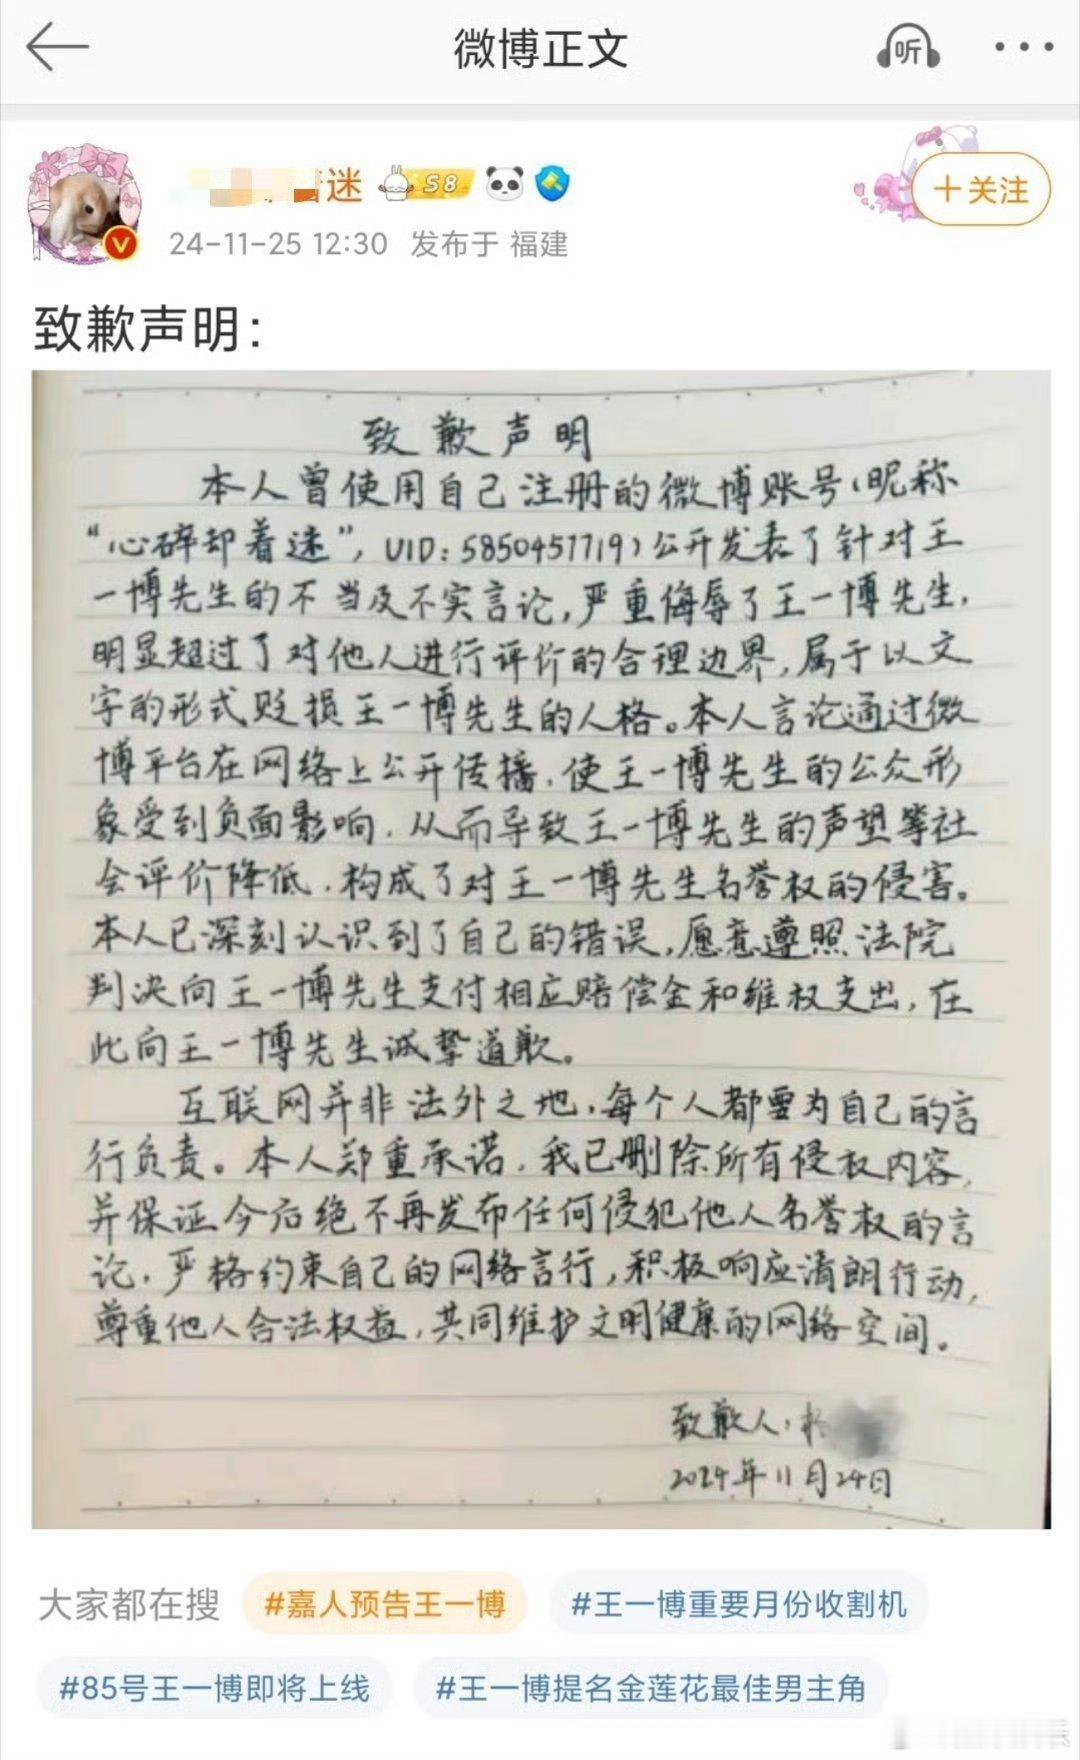 微博正文
听
迷
S8
24-11-25 12:30 发布于 福建
+关注
致歉声明:
致歉声明
本人曾使用自己注册的微博账号(昵称
“心碎却着迷”,UID:5850451719)公开发表了针对王
一博先生的不当及不实言论,严重侮辱了王一博先生,
明显超过了对他人进行评价的合理边界,属于以文
字的形式贬损王一博先生的人格。本人言论通过微
博平台在网络上公开传播,使王一博先生的公众形
象受到负面影响,从而导致王一博先生的声望等社
会评价降低,构成了对王一博先生名誉权的侵害。
本人已深刻认识到了自己的错误,愿意遵照法院
判决向王一博先生支付相应赔偿金和维权支出,在
此向王一博先生诚挚道歉。
互联网并非法外之地,每个人都要为自己的言
行负责。本人郑重承诺,我已删除所有侵权内容,
并保证今后绝不再发布任何侵犯他人名誉权的言
论,严格约束自己的网络言行,积极响应清朗行动,
尊重他人合法权益,共同维护文明健康的网络空间。
致歉人:
2024年11月24日
大家都在搜
#嘉人预告王一博
#王一博重要月份收割机
#85号王一博即将上线
#王一博提名金莲花最佳男主角